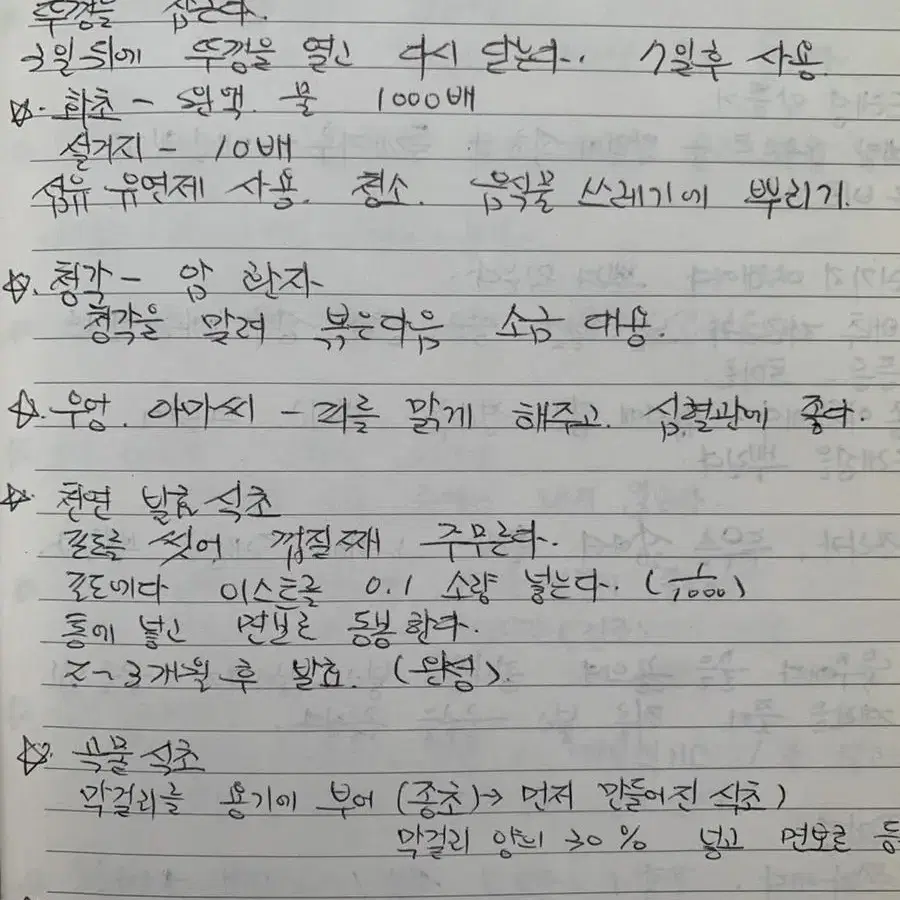 뚜껑을
3일 뒤에 뚜껑을 열고 다시 닫는다. 7일후 사용.
☆. 화초 - 원액. 물 1000배
설거지 - 10배
섬유 유연제 사용. 청소. 음식물 쓰레기에 뿌리기.
☆. 청각 - 암 환자
청각을 말려 볶은다음 소금 대용.
☆. 우엉. 아마씨 - 피를 맑게 해주고. 심혈관에 좋다.
☆. 천연 발효식초
포도를 씻어 껍질째 주무른다.
포도에다 이스트를 0.1 소량 넣는다. (1/1000)
통에 넣고 면보로 동봉한다.
2~3개월 후 발효. (완성).
☆. 곡물식초
막걸리를 용기에 부어 (종초)→ 먼저 만들어진 식초)
막걸리 양의 30% 넣고 면보로